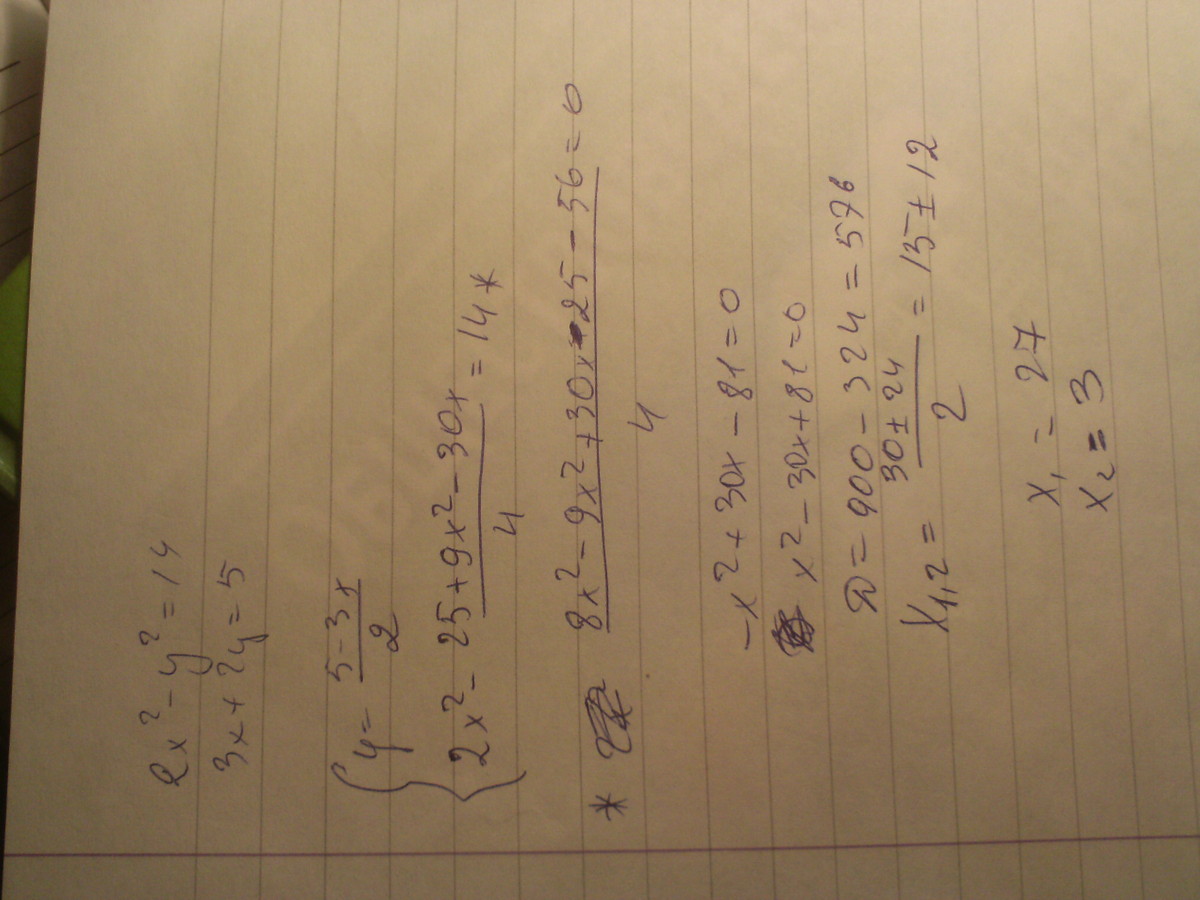 2x² - y² = 14
3x + 2y = 5
{ y = (5 - 3x)/2
{ 2x² - (25 + 9x² - 30x)/4 = 14 *
* (8x² - 9x² + 30x - 25 - 56)/4 = 0
-x² + 30x - 81 = 0
x² - 30x + 81 = 0
D = 900 - 324 = 576
x₁,₂ = (30 ± 24)/2 = 15 ± 12
x₁ = 27
x₂ = 3